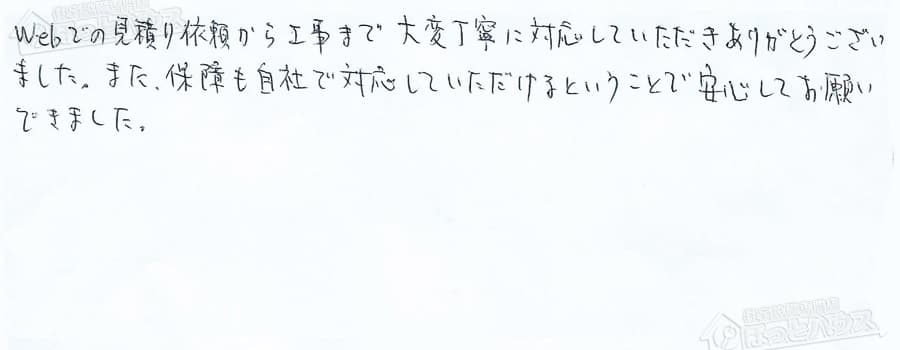 Webでの見積り依頼から工事まで大変丁寧に対応していただきありがとうござい
ました。また、保障も自社で対応していただけるということで安心してお願い
できました。
ほっとハウス